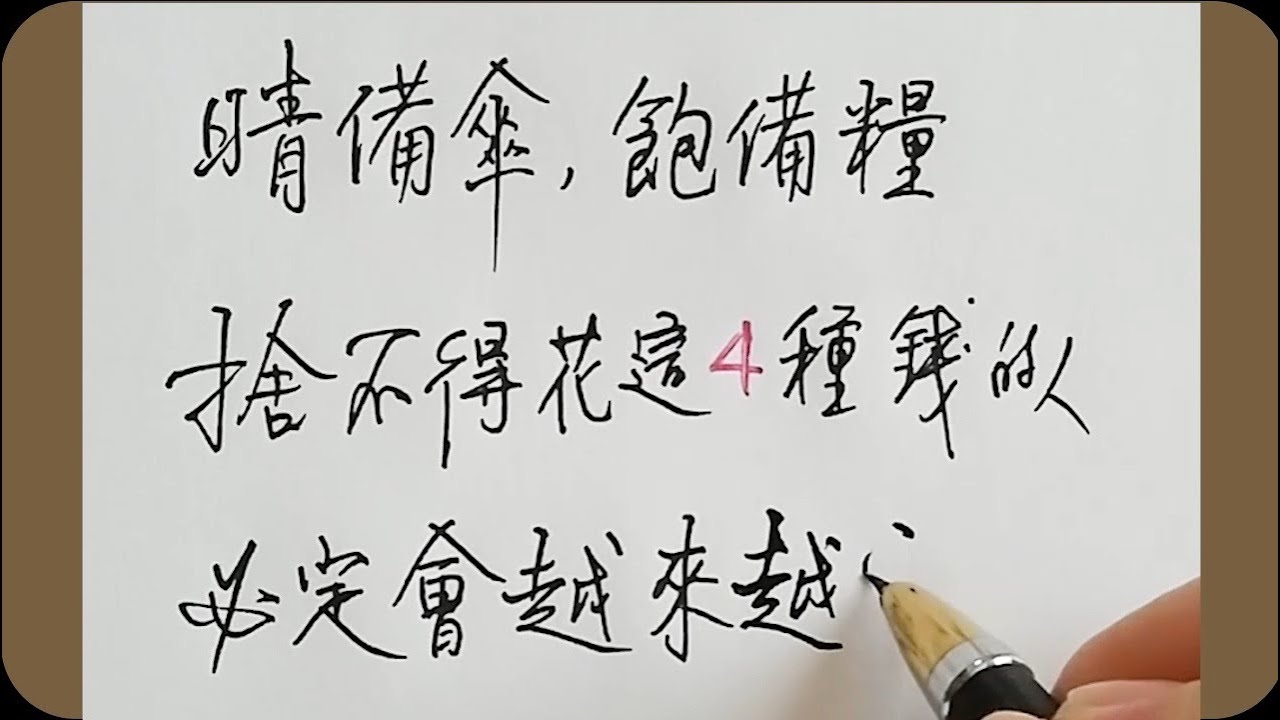 晴備傘,飽備糧
捨不得花這4種錢的人
必定會越來越